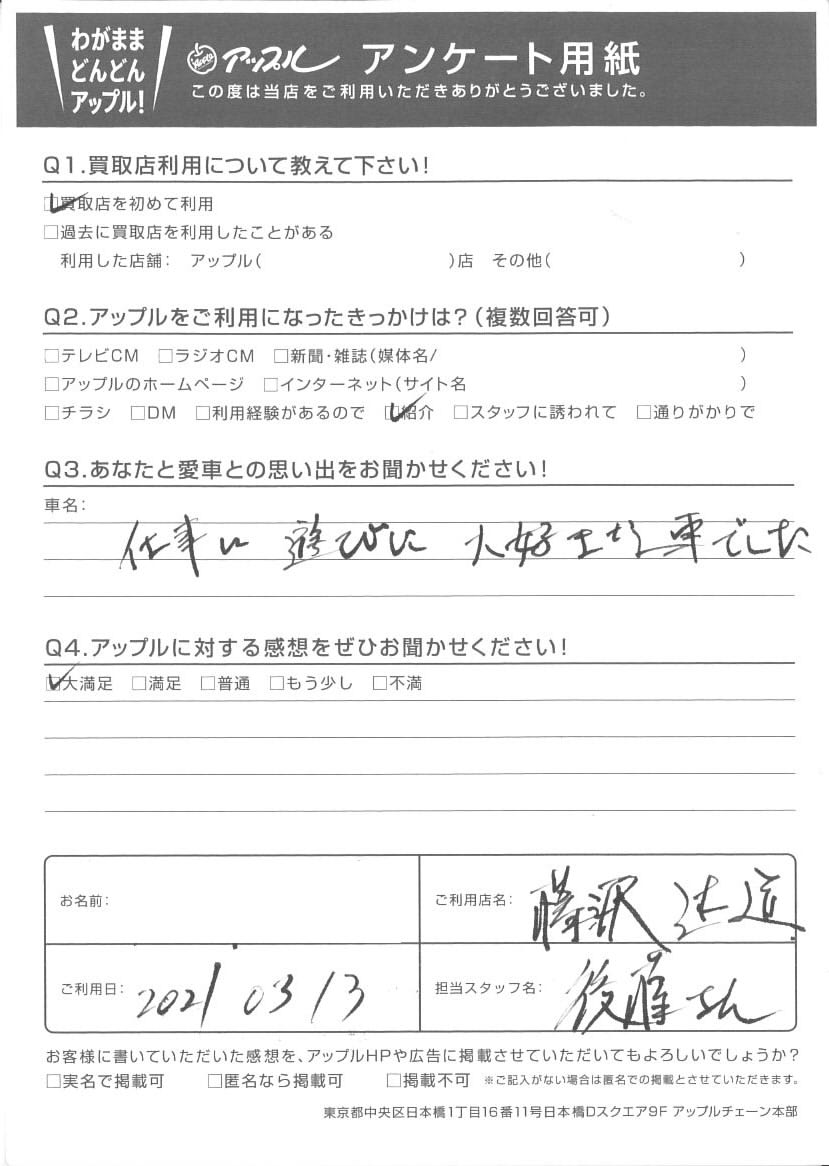 わがまま
どんどん
アップル!
アップル アンケート用紙
この度は当店をご利用いただきありがとうございました。
Q1.買取店利用について教えて下さい!
☑買取店を初めて利用
□過去に買取店を利用したことがある
利用した店舗: アップル( )店 その他( )
Q2.アップルをご利用になったきっかけは?(複数回答可)
□テレビCM □ラジオCM □新聞・雑誌(媒体名/ )
□アップルのホームページ □インターネット(サイト名 )
□チラシ □DM □利用経験があるので ☑紹介 □スタッフに誘われて □通りがかりで
Q3.あなたと愛車との思い出をお聞かせください!
車名:
仕事に 遊びに 大好きな車でした
Q4.アップルに対する感想をぜひお聞かせください!
☑大満足 □満足 □普通 □もう少し □不満
お名前:
ご利用店名: 藤沢
ご利用日: 2021 03 13
担当スタッフ名: 後藤さん
お客様に書いていただいた感想を、アップルHPや広告に掲載させていただいてもよろしいでしょうか?
□実名で掲載可 □匿名なら掲載可 □掲載不可 ※ご記入がない場合は匿名での掲載とさせていただきます。
東京都中央区日本橋1丁目16番11号日本橋Dスクエア9F アップルチェーン本部